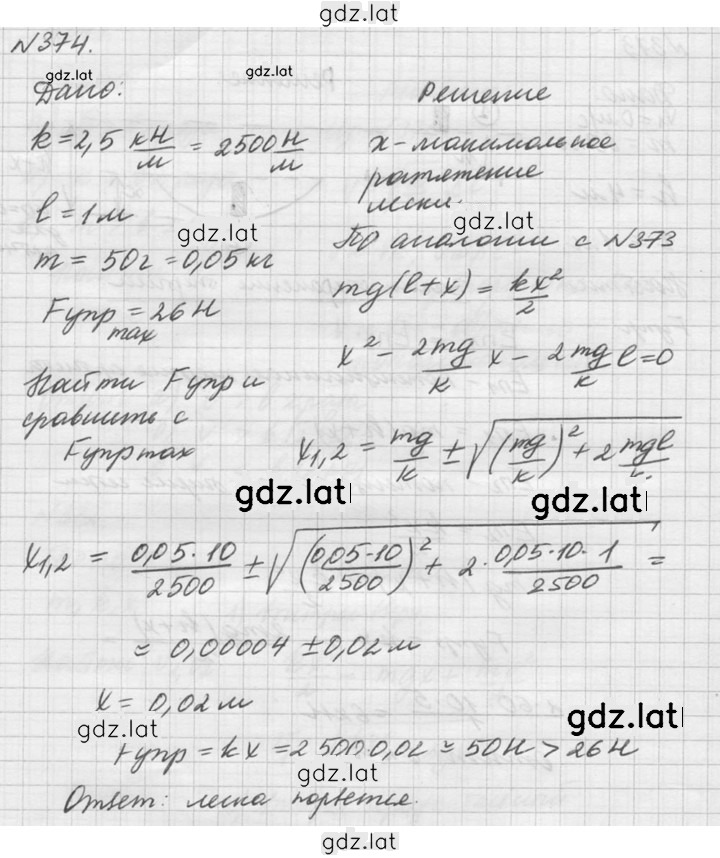 gdz.lat
№374.
gdz.lat
Дано:
k = 2,5 кН/м = 2500 Н/м
l = 1 м
gdz.lat
m = 50 г = 0,05 кг
Fупр max = 26 Н
Найти Fупр и
сравнить с
Fупр max
Решение
x - максимальное
растяжение
лески.
gdz.lat
По аналогии с №373
mg(l+x) = kx²/2
x² - 2mg/k x - 2mg/k l = 0
x1,2 = mg/k ± √((mg/k)² + 2 mgl/k)
gdz.lat
gdz.lat
x1,2 = 0,05·10/2500 ± √((0,05·10/2500)² + 2·0,05·10·1/2500) =
≈ 0,00004 ± 0,02 м
x = 0,02 м
gdz.lat
gdz.lat
Fупр = kx = 2500·0,02 ≈ 50 Н > 26 Н
gdz.lat
Ответ: леска порвется.
gdz.lat